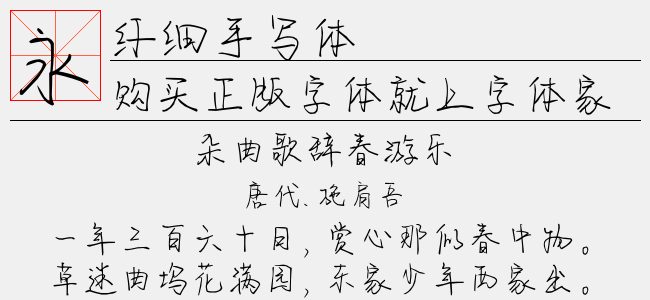 永
纤细手写体
购买正版字体就上字体家
杂曲歌辞春游乐
唐代、施肩吾
一年三百六十日，赏心那似春中物。
草迷曲坞花满园，东家少年西家出。